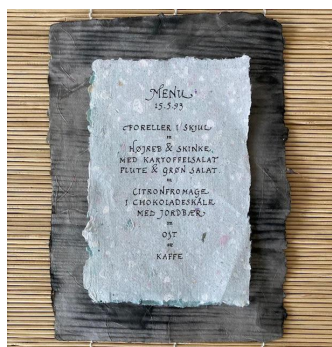 MENU
15.5.93
FORELLER I SKJUL
HØJREB & SKINKE
MED KARTOFFELSALAT
FLUTE & GRØN SALAT
CITRONFROMAGE
I CHOKOLADESKÅLE
MED JORDBÆR
OST
KAFFE